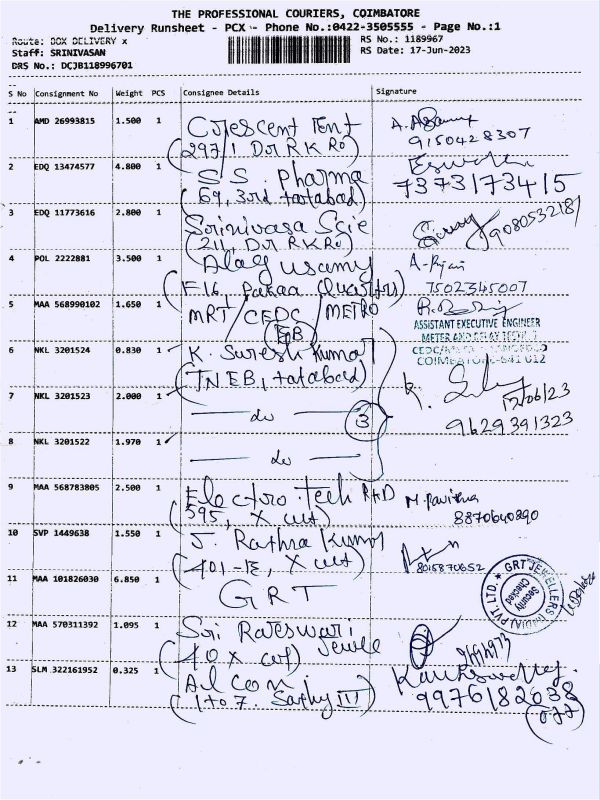 THE PROFESSIONAL COURIERS, COIMBATORE
Delivery Runsheet - PCX - Phone No.:0422-3505555 - Page No.:1
Route: DOX DELIVERY x
RS No.: 1189967
Staff: SRINIVASAN
RS Date: 17-Jun-2023
DRS No.: DCJB118996701
S No Consignment No Weight PCS Consignee Details Signature
1 AMD 26993815 1.500 1 Crescent Tent
(297/1 Dr R K Rd)
9150428307
2 EDQ 13474577 4.800 1 S.S. Pharma
(69, 3rd tatabad)
7373173415
3 EDQ 11773616 2.800 1 Srinivasa
(211, Dr R K Rd)
9080532181
4 POL 2222881 3.500 1 Alagusamy
(F16, Quarters)
7502345007
5 MAA 568990102 1.650 1 MRT/CEDC/METRO
(EB)
ASSISTANT EXECUTIVE ENGINEER
METER AND RELAY
COIMBATORE-641 012
6 NKL 3201524 0.830 1 K. Suresh Kumar
(TNEB, tatabad)
7 NKL 3201523 2.000 1 do
3
17/06/23
9629391323
8 NKL 3201522 1.970 1 do
9 MAA 568783805 2.500 1 Electro Tech R&D
595, X cut)
M. Pavithra
8870640890
10 SVP 1449638 1.550 1 J. Rathna Kumar
(401-E, X cut)
8015870652
11 MAA 101826030 6.850 1 GRT
GRT JEWELLERS (INDIA) PVT. LTD.
Security Checked
12 MAA 570311392 1.095 1 Sri Rajeswari Jewel
(40 X cut)
13 SLM 322161952 0.325 1 Alcon
(1 to 7. Sathy III)
9976182038